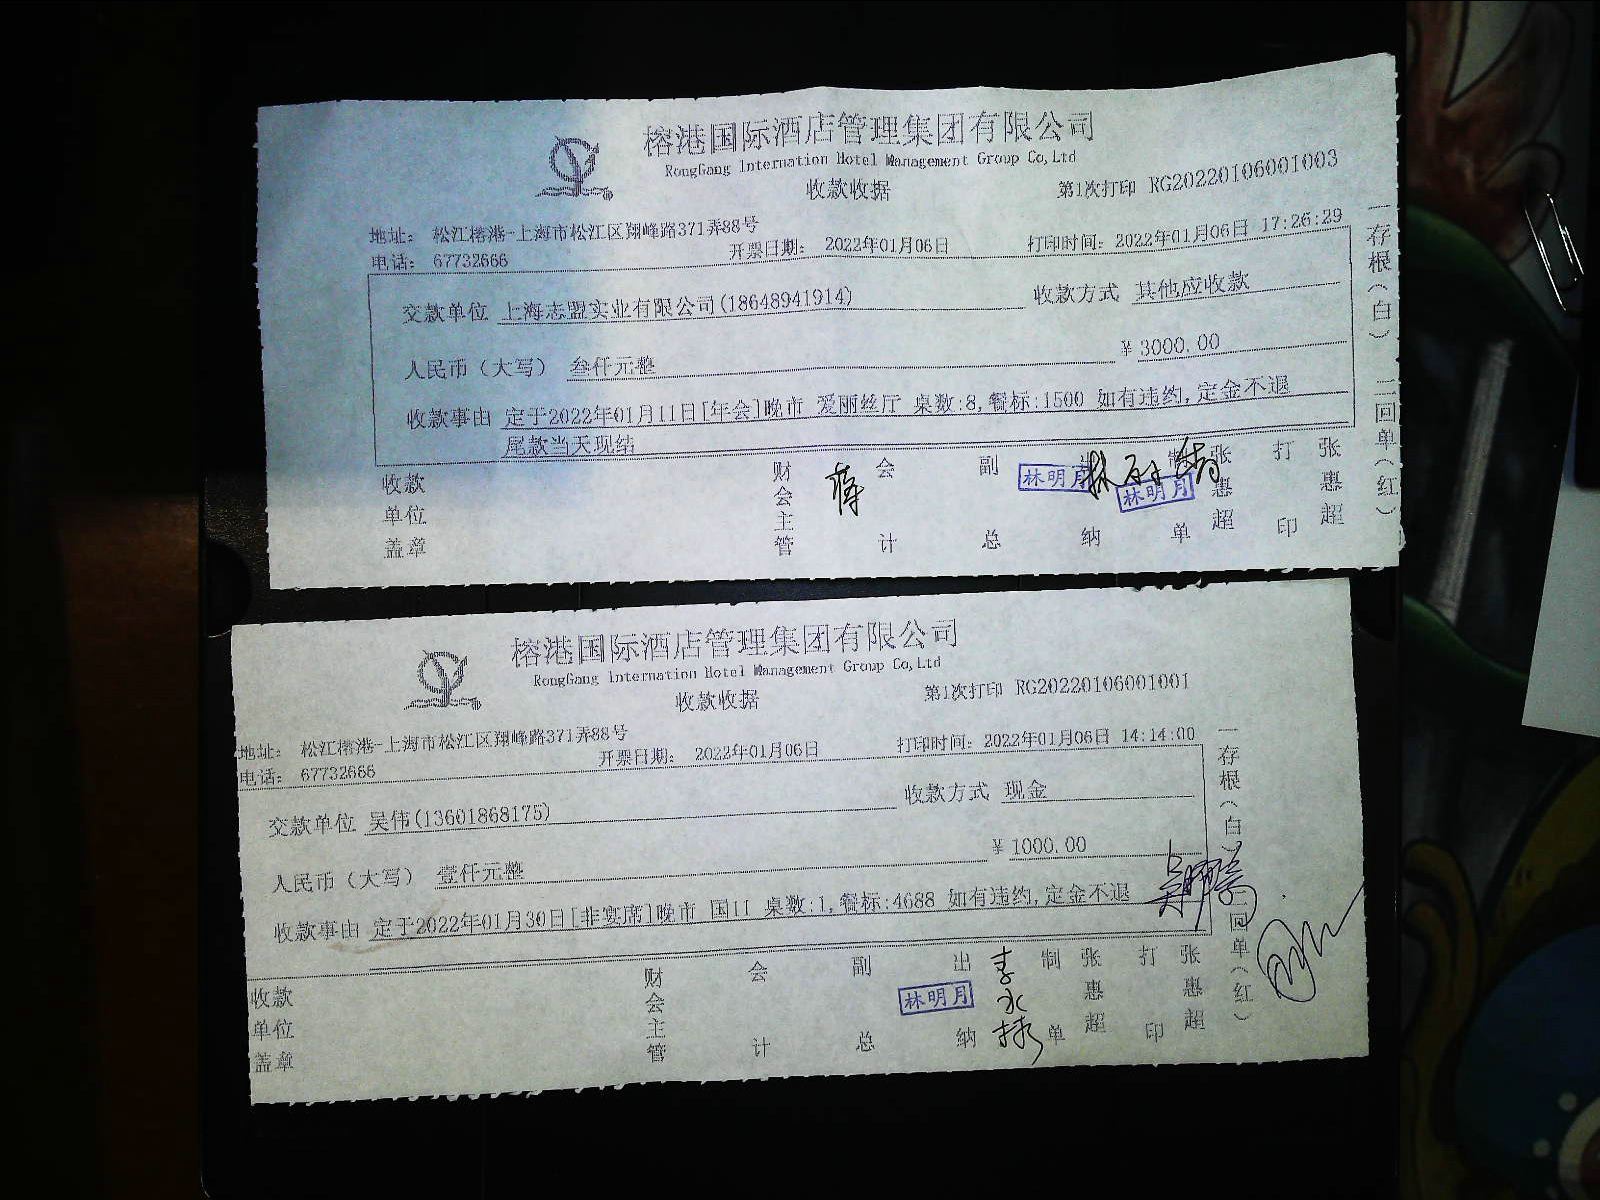 榕港国际酒店管理集团有限公司
RongGang Internation Hotel Management Group Co,Ltd
收款收据
第1次打印 RG20220106001003
地址: 松江榕港-上海市松江区翔峰路371弄88号
电话: 67732666
开票日期: 2022年01月06日
打印时间: 2022年01月06日 17:26:29
交款单位 上海志盟实业有限公司(18648941914)
收款方式 其他应收款
人民币(大写) 叁仟元整
¥3000.00
收款事由 定于2022年01月11日[年会]晚市 爱丽丝厅 桌数:8,餐标:1500 如有违约,定金不退
尾款当天现结
收款单位盖章
财会主管
会计
副总
出纳
林明月
林明月
制单
张惠超
打印
张惠超
一存根(白) 二回单(红)
榕港国际酒店管理集团有限公司
RongGang Internation Hotel Management Group Co,Ltd
收款收据
第1次打印 RG20220106001001
地址: 松江榕港-上海市松江区翔峰路371弄88号
电话: 67732666
开票日期: 2022年01月06日
打印时间: 2022年01月06日 14:14:00
交款单位 吴伟(13601868175)
收款方式 现金
人民币(大写) 壹仟元整
¥1000.00
收款事由 定于2022年01月30日[非宴席]晚市 国11 桌数:1,餐标:4688 如有违约,定金不退
收款单位盖章
财会主管
会计
副总
出纳
林明月
制单
张惠超
打印
张惠超
一存根(白) 二回单(红)